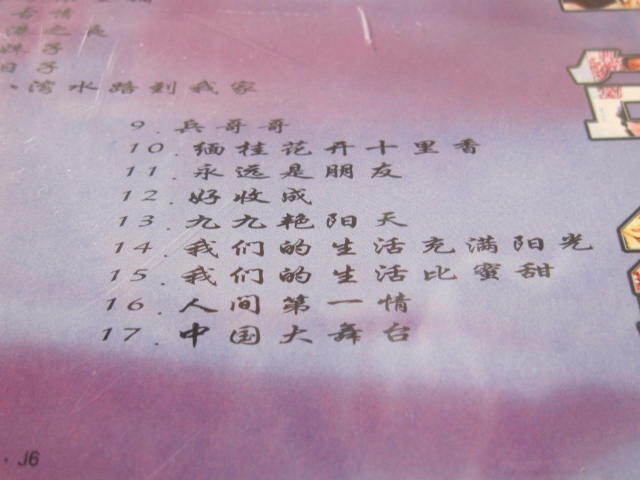 古情
妹子
日子
·湾水路到我家
9.兵哥哥
10.缅桂花开十里香
11.永远是朋友
12.好收成
13.九九艳阳天
14.我们的生活充满阳光
15.我们的生活比蜜甜
16.人间第一情
17.中国大舞台
· J6